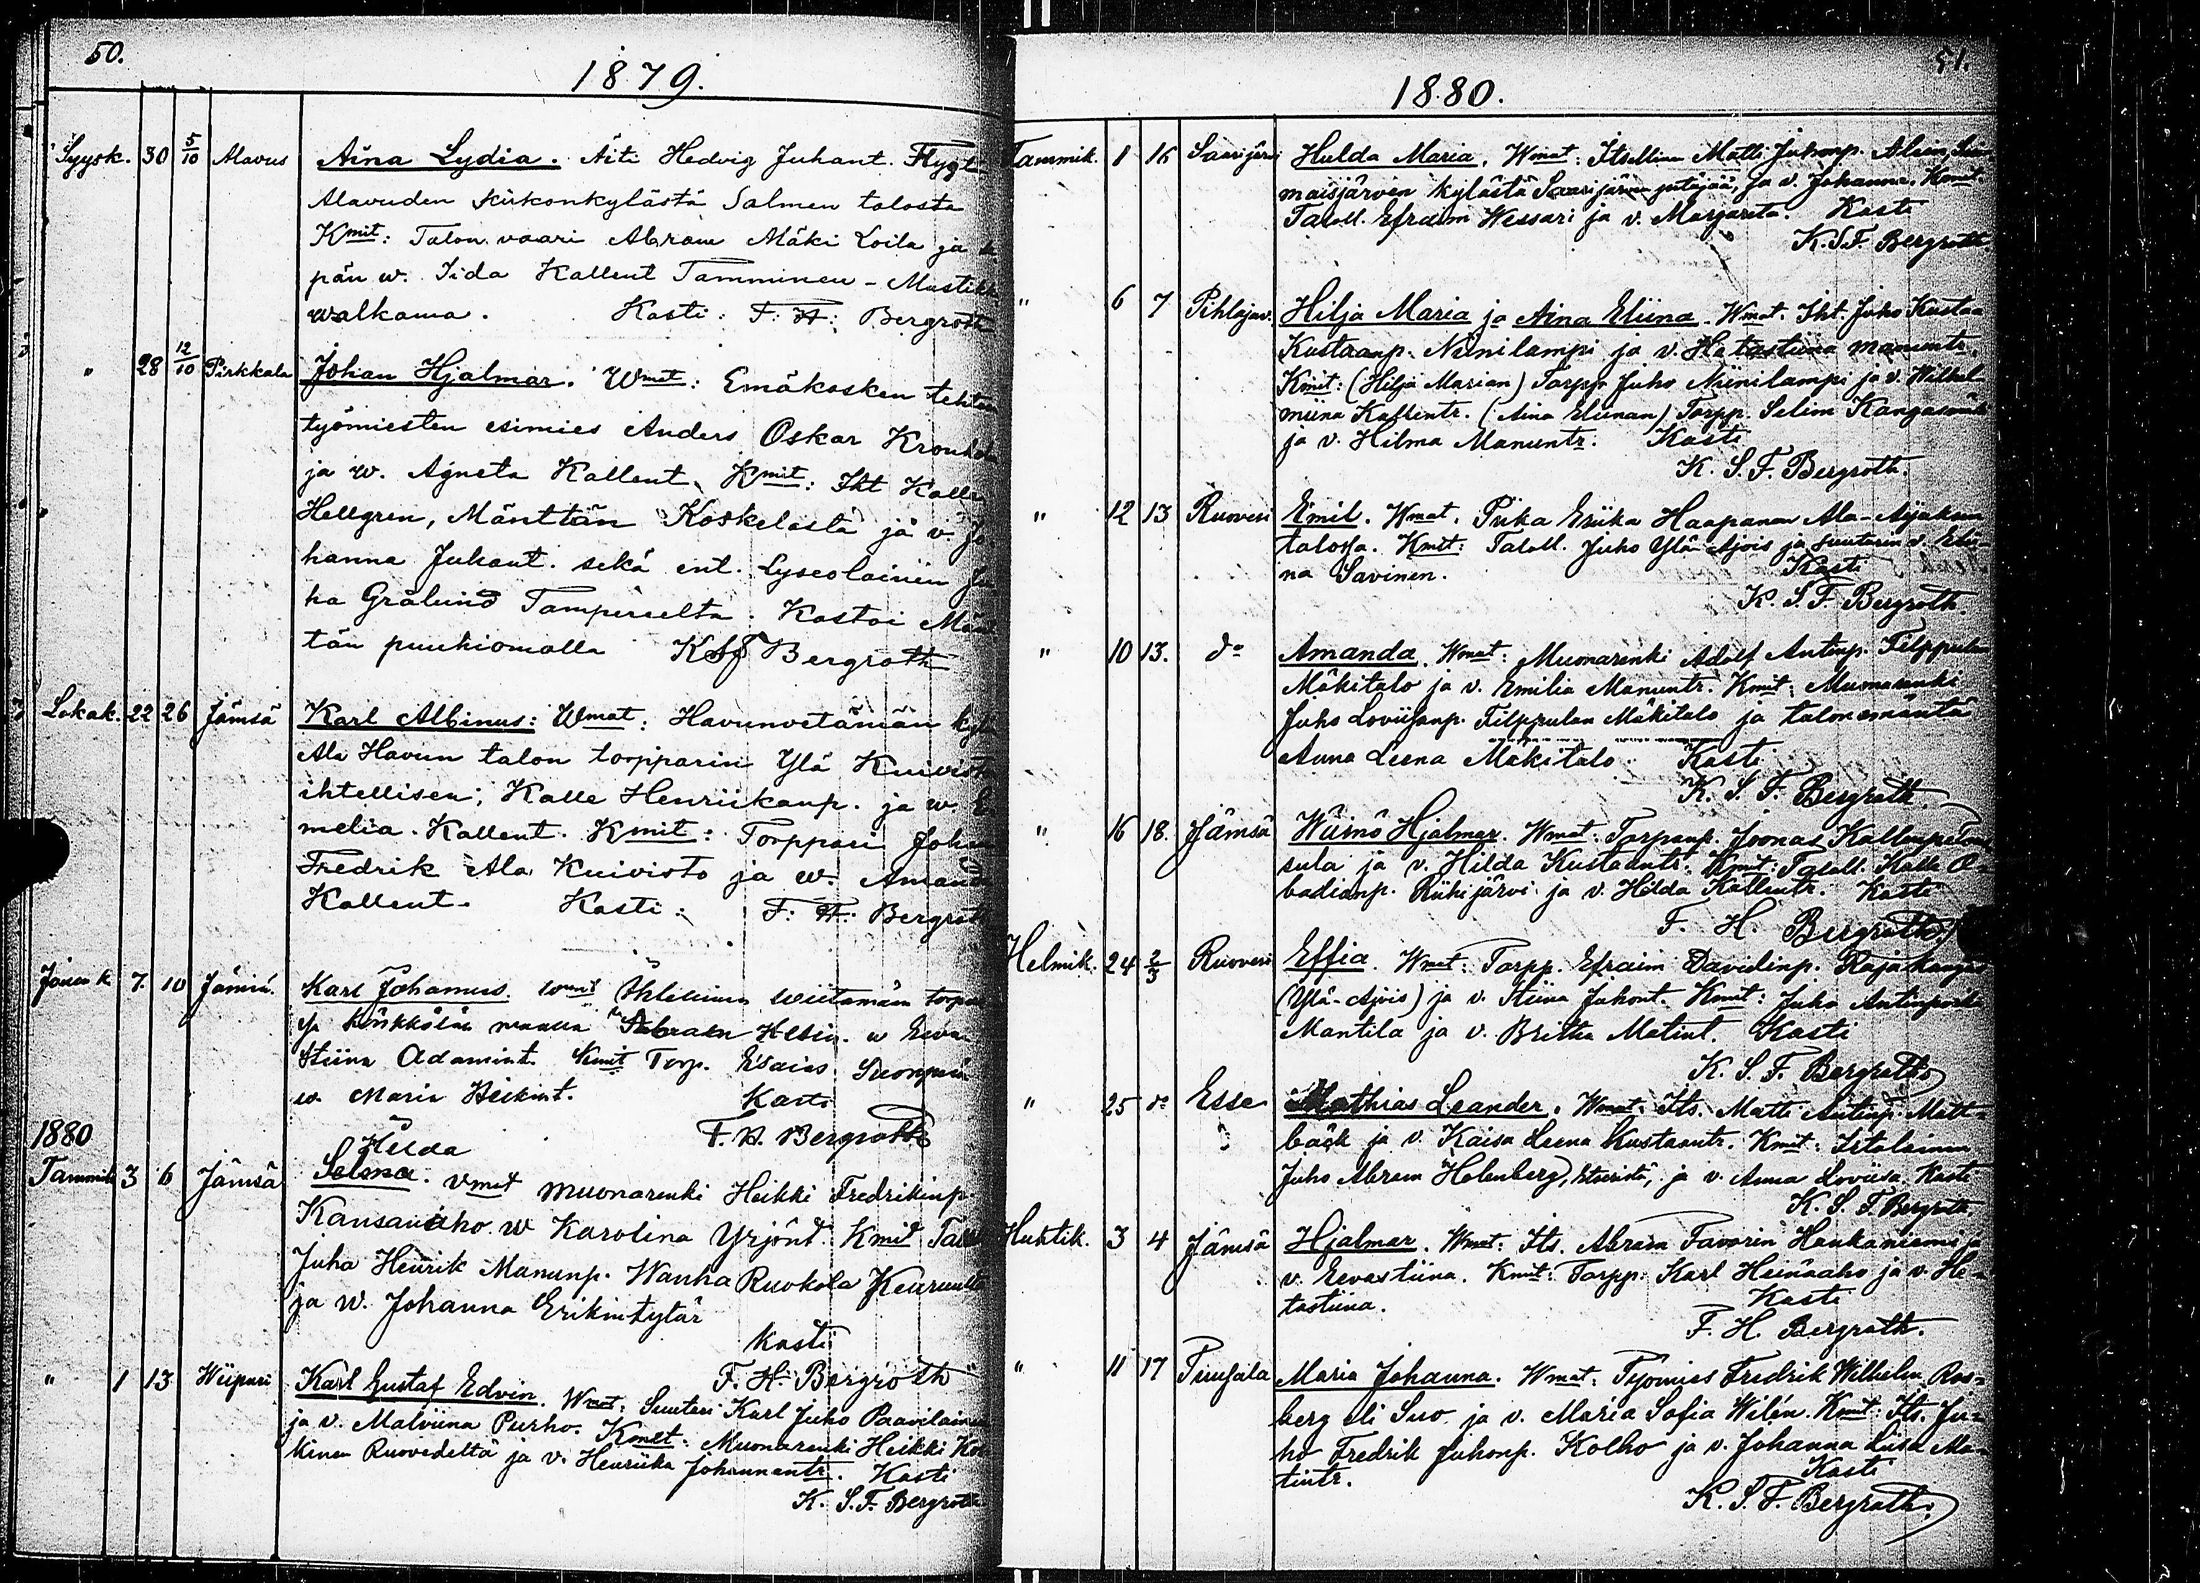 50.
1879.
Syysk. 30 5/10 Alavus Aina Lydia. Äiti Hedvig Juhant.
Alavuden kirkonkylästä Salmen talosta
Kmit: Talon vaari Abram Mäki Loila ja
pän w. Iida Kallent Tamminen - Mustikka
walkama. Kasti: F: H: Bergroth
" 28 12/10 Pirkkala Johan Hjalmar. Wmat: Emäkosken
työmiesten esimies Anders Oskar
ja w. Agneta Kallent. Kmit: Iht Kalle
Hellgren, Mänttän Koskelasta ja v. Jo
hanna Juhant. sekä ent. Lyseolainen
ha Grålund Tampereelta. Kastoi Mänt
tän puuhiomolla KSF Bergroth
Lokak. 22 26 Jämsä Karl Albinus: Wmat: Havunvetämän
Ala Havun talon torpparin Ylä Kuivisto
ihtellisen; Kalle Henriikanp. ja w. E
melia. Kallent. Kmit: Torppari Johan
Fredrik Ala Kuivisto ja w. Amanda
Kallent. Kasti: F: H: Bergroth
Jouluk 7. 10 Jämsä. Karl Johannes. Wmat
w Eeva
Stiina Adamint. Kmit Torp. Esaias
w. Maria Heikint. Kasti
F. H. Bergroth
1880
Hilda
Tammik 3 6 Jämsä Selma. Vmat muonarenki Heikki Fredrikinp
Kansanaho w Karolina Yrjönt. Kmit
Juha Henrik Manunp. Wanha Ruokola Keuruulta
ja w. Johanna Erikintytär
Kasti
F. H. Bergroth
" 1 13 Wiipuri Karl Gustaf Edvin. Wmat: Suutari Karl Juho Paavilainen
ja v. Malviina Purho. Kmit: Muonarenki Heikki
kinen Ruovedeltä ja v. Henriika Johannantr. Kasti
K. S. F. Bergroth
51.
1880.
Tammik. 1 16 Saarijärvi Hulda Maria. Wmat: Itsellinen Matti Juhonp.
maisjärven kylästä Saarijärven pitäjää, ja v. Johanna. Kmit.
Taloll. Efraim Wessari ja v. Margareta. Kasti
K. S. F. Bergroth
" 6 7 Pihlajav. Hilja Maria ja Aina Eliina. Wmat. Iht. Juho Kustaa
Kustaanp. Niinilampi ja v. Hetastiina Manuntr.
Kmit: (Hilja Marian) Torpp. Juho Niinilampi ja v. Wilhel-
miina Kallentr. (Aina Eliinan) Torpp. Selim Kangasmäki
ja v. Hilma Manuntr. Kasti
K. S. F. Bergroth.
" 12 13 Ruovesi Emil. Wmat. Piika Eriika Haapanen
talossa. Kmit: Taloll. Juho Ylä-Ajois ja suutarin v. Elii-
na Savinen. Kasti
K. S. F. Bergroth.
" 10 13. do Amanda. Wmat: Muonarenki Adolf Antinp. Filppula
Mäkitalo ja v. Emilia Manuntr. Kmit: Muonarenki
Juho Loviisanp. Filppulan Mäkitalo ja talon emäntä
Anna Leena Mäkitalo. Kasti
K. S. F. Bergroth.
" 16 18. Jämsä Wäinö Hjalmar. Wmat. Torpanp. Joonas
sula ja v. Hilda Kustaantr. Kmit: Taloll. Kalle O-
badianp. Riihijärvi ja v. Hilda Kallentr. Kasti
F. H. Bergroth.
Helmik. 24 2/3 Ruovesi Effia. Wmat: Torpp. Efraim Davidinp. Rajakangas
(Ylä-Ajois) ja v. Stiina Juhont. Kmit: Juho Antinpoika
Mantila ja v. Britha Matint. Kasti
K. S. F. Bergroth
" 25 do Esse Mathias Leander. Wmat. Its. Matti Antinp. Matt-
bäck ja v. Kaisa Leena Kustaantr. Kmit:
Juho Abram Holenberg, ja v. Anna Loviisa. Kasti
K. S. F. Bergroth.
Huhtik. 3 4 Jämsä Hjalmar. Wmat: Its. Abram Favorin Haukaniemi ja
v. Eevastiina. Kmit: Torpp. Karl Heinäaho ja v. He-
tastiina. Kasti
F. H. Bergroth.
" 11 17 Tuusula Maria Johanna. Wmat. Työmies Fredrik Wilhelm Ros-
berg eli Suo ja v. Maria Sofia Wilén. Kmit: Its. Ju-
ho Fredrik Juhonp. Kolho ja v. Johanna Liisa Ma-
tintr. Kasti
K. S. F. Bergroth.